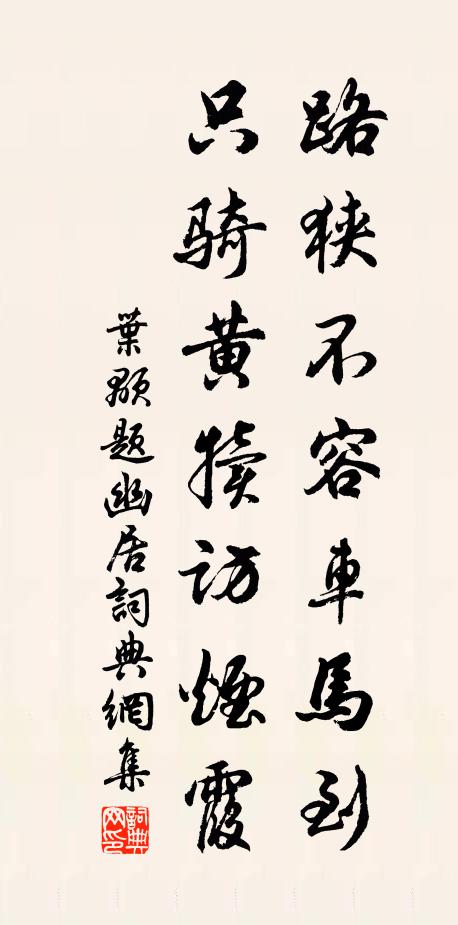 路狹不容車馬到
只騎黃犢訪煙霞
葉顒題幽居詞典網集
詞典
网印